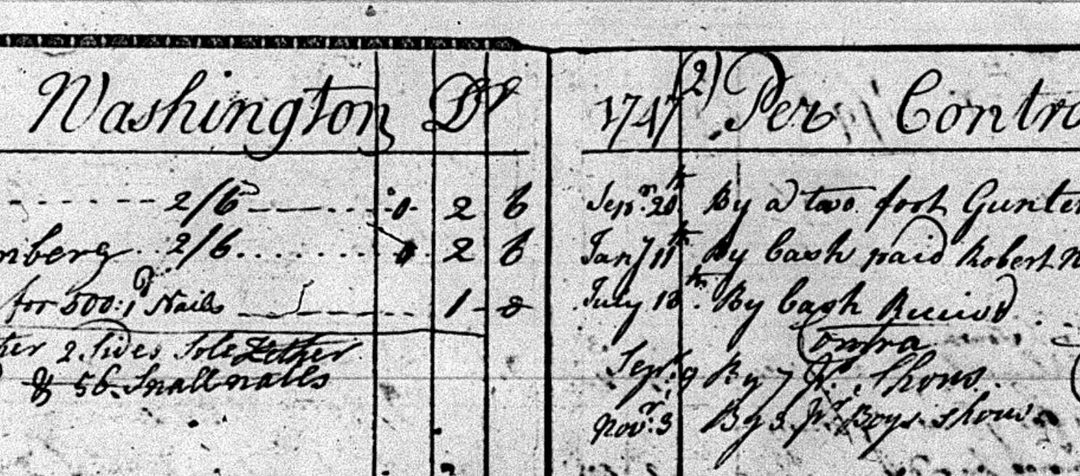 Washington Dr
2/6 0 2 6
nberg 2/6 0 2 6
for 500: 1d Nails 1 8
2 Sides Sole Lether
& 56 Small nails
1747 (2) Per Contra
Sepr. 20th By a two foot Gunter
Jany 11th By Cash paid Robert
July 18th By Cash Receivd
omra
Sept. 9 By 7 pr. Shoes
Novr. 3 By 3 pr. Boys shoes